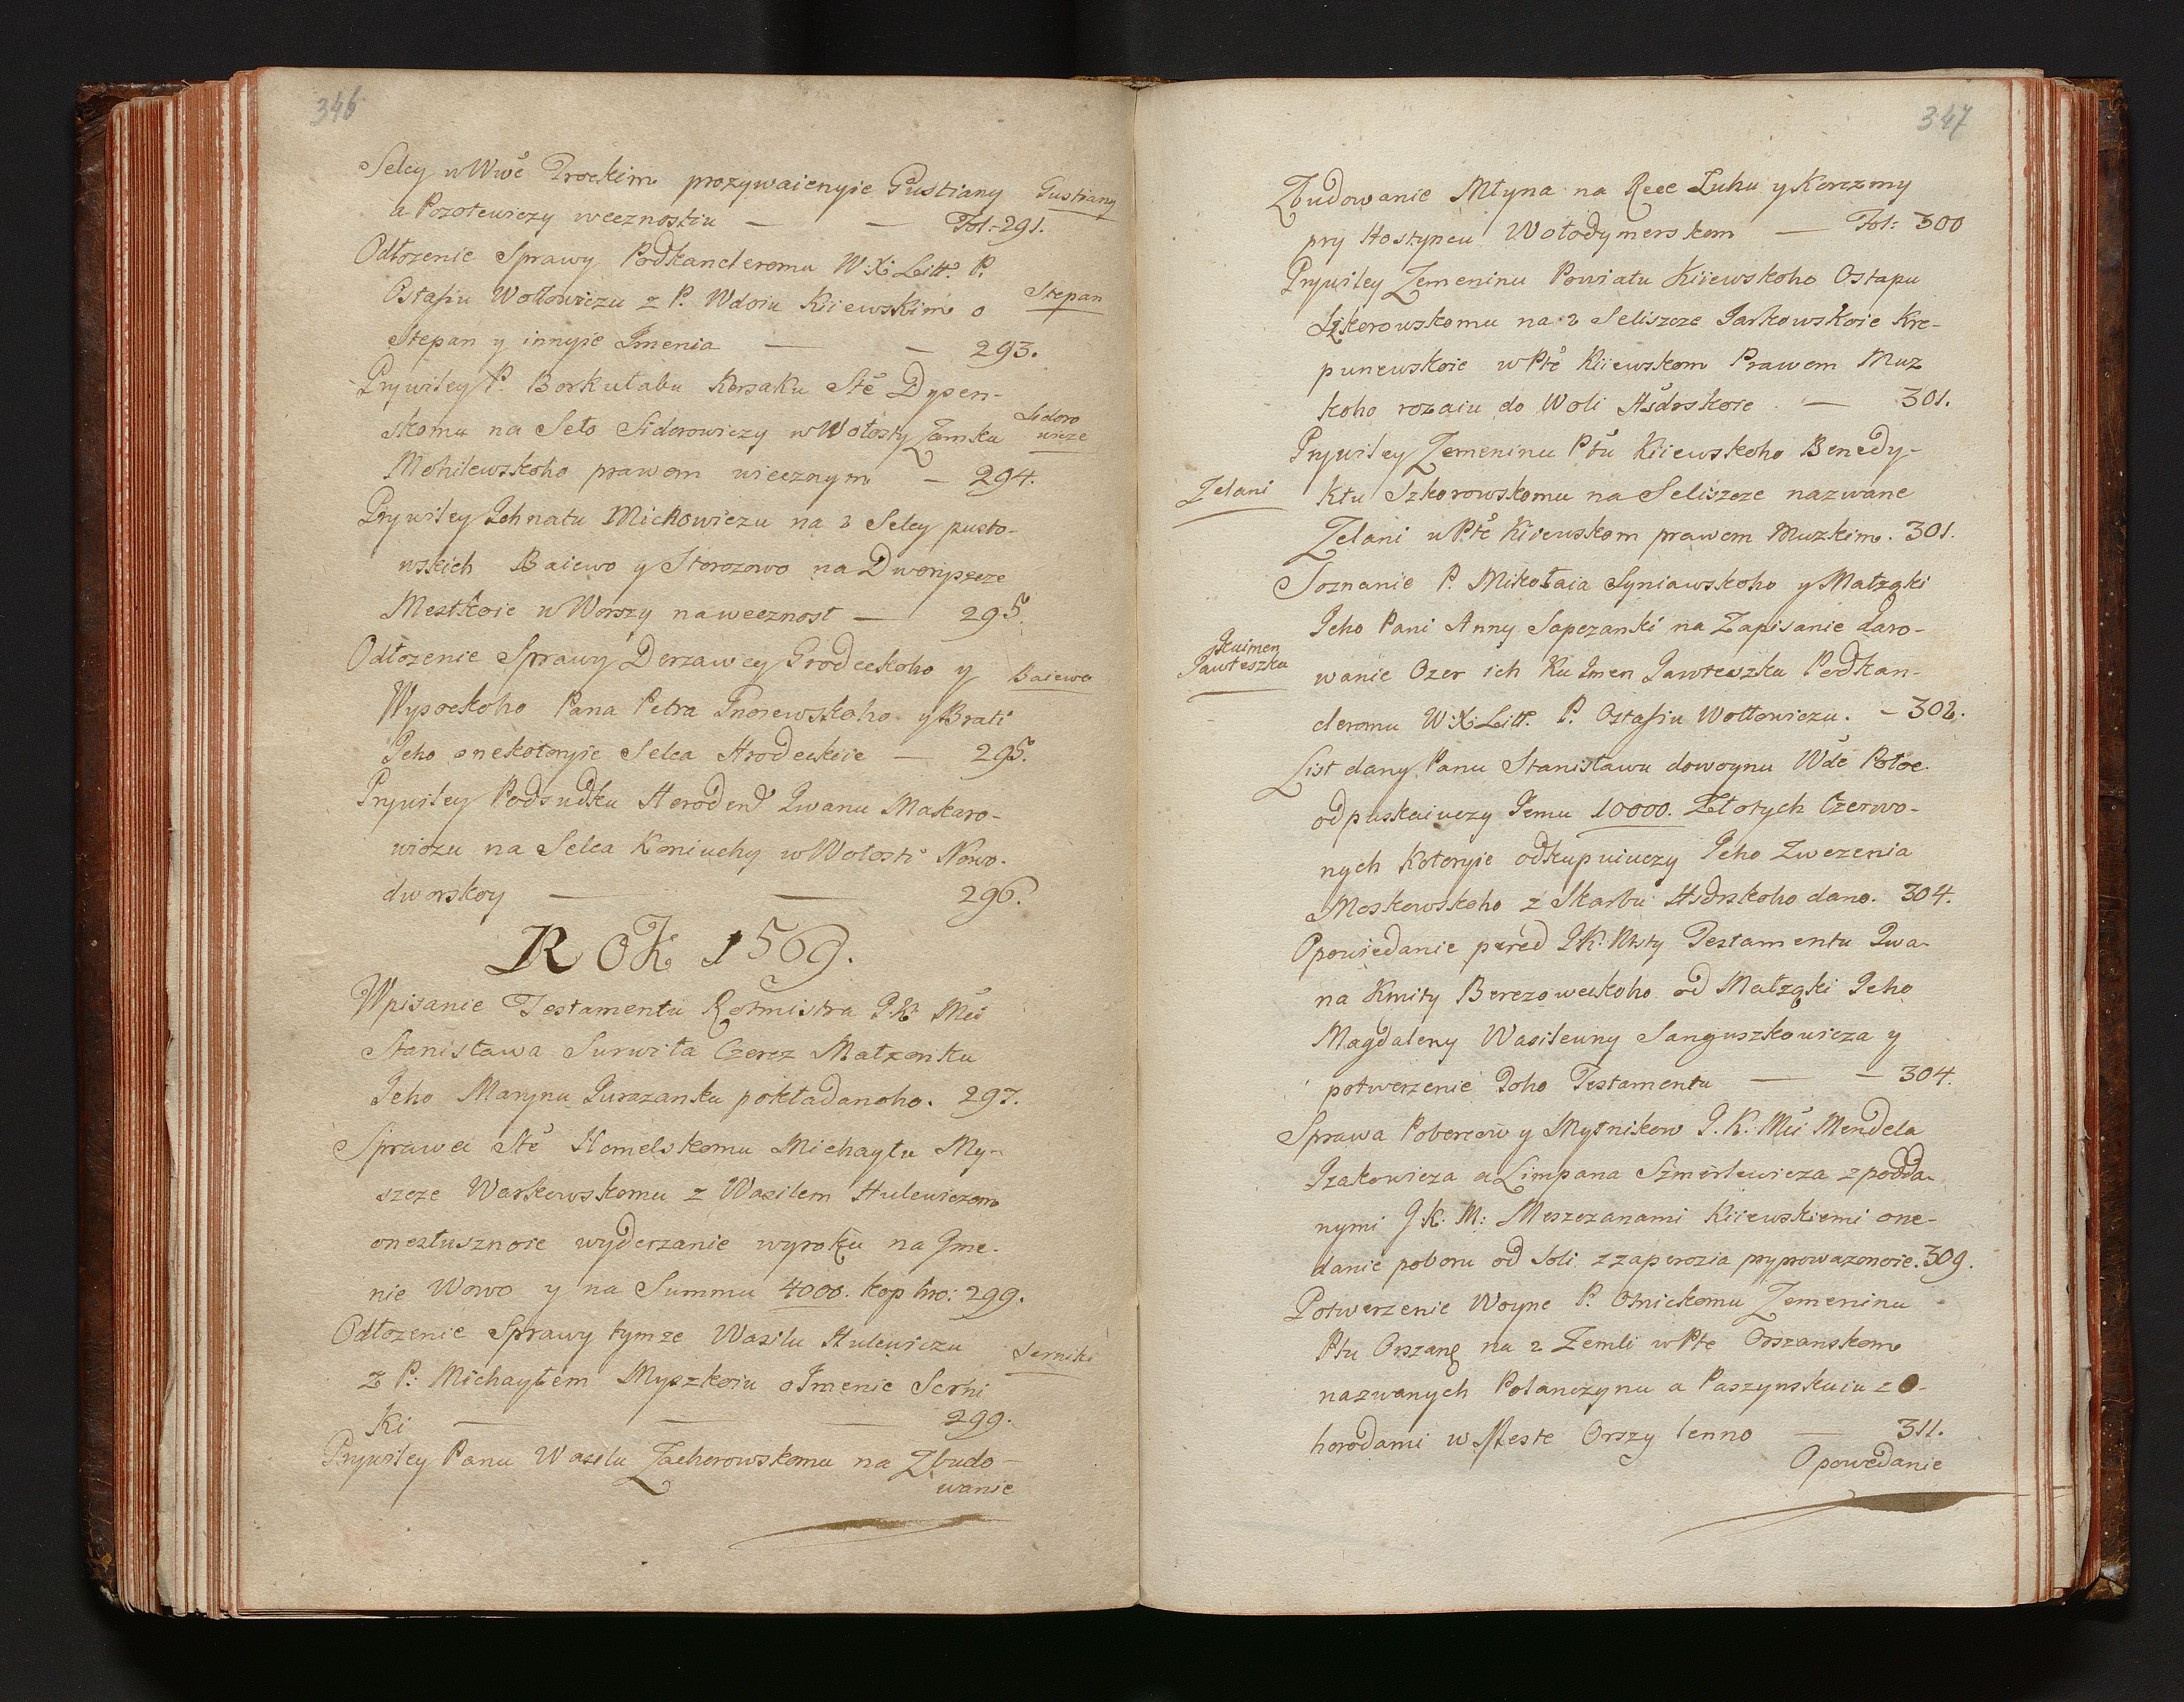 346
Selcy w Wwě Trockim prozywaiemyie Gustiany
Gustiany
a Pozotewiczy weeznostiu — — Fol: 291.
Odłozenie Sprawy Podkancleromu W: X: Litt. P.
Ostafiu Wołłowiczu z P. Wdoiu Kiiewskim o
Stepan
Stepan y innyie Imenia — — 293.
Prywiley P. Borkułabu Korsaku Stě Dysen-
skomu na Seło Siderowiczy w Wołosty Zamku
Sidoro
wicze
Mohilewskoho prawem wiecznym — 294.
Prywiley Ihnatu Mickowiczu na 2 Selcy pusto-
wskich Baiewo y Storozowo na Dworyszcze
Mestkoie w Worszy na wecznost — 295.
Odłozenie Sprawy Derzawcy Grodeckoho y
Baiewo
Wysockoho Pana Petra Inoiewskoho y Brati
Jeho o nekotoryie Selca Hrodeckiie — 295.
Prywiley Podsudku Horodend Iwanu Makaro-
wiczu na Selca Koniuchy w Wołosti Nowo-
dworskoy — — 296.
ROK 1569.
Wpisanie Testamentu Rotmistra J. K. Mči
Stanisława Surwiła Czerez Małzonku
Jeho Marynu Jurazanku pokładanoho. 297.
Sprawa Stě Homelskomu Michayłu My-
szcze Warkowskomu z Wasilem Hulewiczem
o nesłusznoie wyderzanie wyroku na Ime-
nie Wowo y na Summu 4000. kop hro: 299.
Odłozenie Sprawy tymze Wasilu Hulewiczu
Serniki
z P: Michayłem Myszkoiu o Imenie Serni
ki — — — 299.
Prywiley Panu Wasilu Zachorowskomu na Zbudo-
wanie
347
Zbudowanie Młyna na Rece Luhu y Korczmy
pry Hostyncu Wołodymerskom — Fol: 300
Prywiley Zemeninu Powiatu Kiiewskoho Ostapu
Szkerowskomu na 2 Seliszcze Jarkowskoie Kre-
punewskoie w Ptě Kiiewskom Prawem Muz
koho rozaiu do Woli Hsdrskoie — 301.
Prywiley Zemeninu Ptu Kiiewskoho Benedy-
Zelani
Ktu Szkorowskomu na Seliszcze nazwane
Zelani w Ptě Kiiewskom prawem Muzkim. 301.
Soznanie P. Mikołaia Syniawskoho y Małzqki
Jeho Pani Anny Sapezanki na Zapisanie daro-
Ku imen
Jawłeszku
wanie Ozer ich Ku Imen Jawłeszku Podkan-
cleromu W: X: Litt. P. Ostafiu Wołłowiczu. — 302.
List dany Panu Stanisławu dowoynu Wdě Połoc.
odpuskaiuczy Iemu 10000. Złotych Czerwo-
nych Kotoryie odkupuiuczy Jeho Z wezenia
Moskowskoho z Skarbu Hsdrskoho dano. 304.
Opowiedanie pered J K: Msty Testamentu Iwa-
na Kmity Berezoweckoho od Małzqki Jeho
Magdaleny Wasilewny Sanguszkowicza y
potwerzenie Toho Testamentu — — 304.
Sprawa Poborcow y Mytnikow J. K: Mči Mendela
Izakowicza a Limpana Szmerlewicza z podda-
nymi J K: M: Meszczanami Kiiewskiemi o ne-
danie poboru od Soli z zaporozia pryprowazonoie. 309.
Potwerzenie Woyne P. Osnickomu Zemeninu
Ptu Orszans na 2 Zemli w Ptě Orszanskom
nazwanych Polanczynu a Paszynskuiu z O-
horodami w Meste Orszy lenno — 311.
Opowedanie